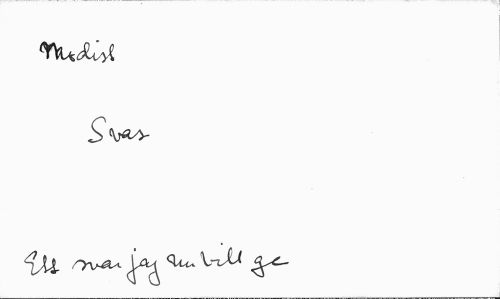 Svar
Ett svar jag nu vill ge